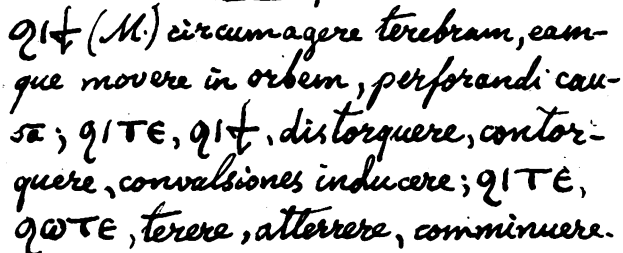 ϥⲓϯ (M.) circumagere terebram, eam-
que movere in orbem, perforandi cau-
sā; ϥⲓⲧⲉ, ϥⲓϯ, distorquere, contor-
quere, convalsiones inducere; ϥⲓⲧⲉ,
ϥⲱⲧⲉ, terere, atterrere, comminuere.